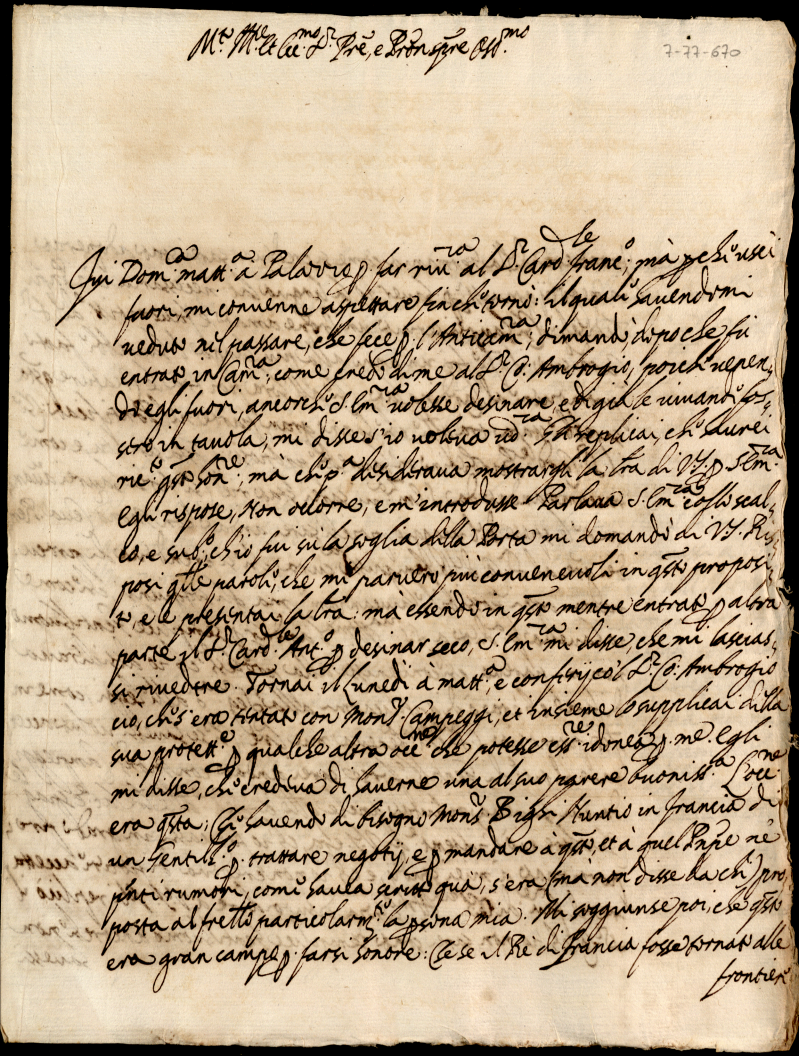 M.to Ill.re et Ecc.mo S.r P.re, e Pron sp̃re Oss.mo
7-77-670
fui Dom.ca matt.a à Palazzo p̱ far riv.za al S.r Card.le Franc.o, mà p̱che usci
fuori, mi convenne aspettare finche tornò: il quale havendomi
veduto nel passare, che fece p̱ l'Anticam.ra, dimandò dipo che fù
entrato in Cam.ra, come credo di me al S.r Co: Ambrogio, poiche venen-
do egli fuori, ancorche S. Em.za volesse desinare, e di già le vivande fos-
sero in tavola, mi disse s'io voleva ud.za. Gli replicai, che haurei
ric.to q̃sto hon.re, mà che p.a desiderava mostrargli la l̃ra di V.S. p̱ S. Em.za
Egli rispose, Non occorre, e m'introdusse. Parlava S. Em.za collo scal-
co, e sub.o, ch'io fui sù la soglia della Porta mi domandò di V.S. Ris-
posi q̃lle parole, che mi parvero piu convenevoli in q̃sto proposi-
to, e le presentai la l̃ra: mà essendo in q̃sto mentre entrato p̱ altra
parte il S.r Card.le Ant.o p̱ desinar seco, S. Em.za mi disse, che mi lascias-
si rivedere. Tornai il Lunedi à matt.a, e conferij co'l S.r Co: Ambrogio
ciò, che s'era tentato con Mons.r Campeggi, et insieme lo supplicai della
sua protett.e p̱ qualche altra occ.ne che potesse ess.re idonea p̱ me. Egli
mi disse, che credeva di haverne una al suo parere buoniss.a. L'occ.ne
era q̃sta; Che havendo di bisogno Mons.r Bighi Nuntio in Francia di
un Gentil'h.o p̱ trattare negotij, e p̱ mandare à q̃sto, et à quel Pn̄pe ne'
pñti rumori, come havea scritto quà, s'era (mà non disse da chi) pro-
posta al fretto particolarm.te la p̱sona mia. Mi soggiunse poi, che q̃sto
era gran campo p̱ farsi honore: Che se il Rè di Francia fosse tornato alle
frontiere